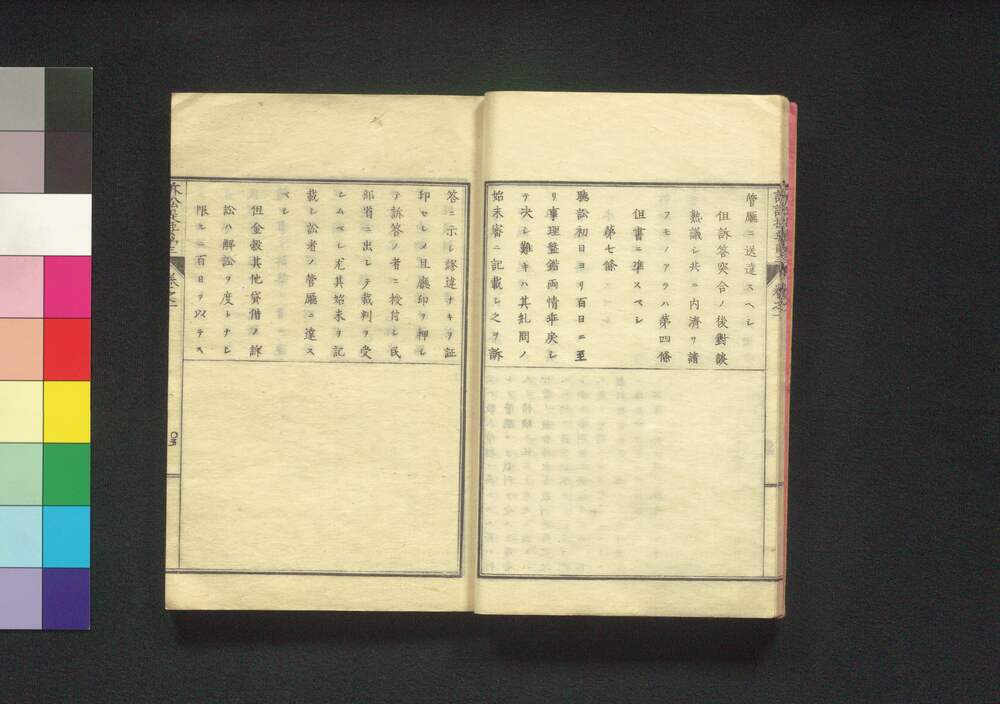 管廳ニ送達スヘシ
但訴答突合ノ後對談
熟議シ共ニ內濟ヲ請
フモノアラハ第四條
但書ニ準スベシ
第七條
聽訟初日ヨリ百日ニ至
リ事理盤錯両情乖戾シ
テ决シ難キハ其糺問ノ
始末審ニ記載シ之ヲ訴
答ニ示シ謬違ナキヲ証
印セシメ且廳印ヲ押シ
テ訴答ノ者ニ授付シ民
部省ニ出シテ裁判ヲ受
シムベシ尤其始末ヲ記
載シ訟者ノ管廳ニ達ス
ベシ
但金穀其他貸借ノ訴
訟ハ解訟ヲ度トナシ
限ルニ百日ヲ以テス